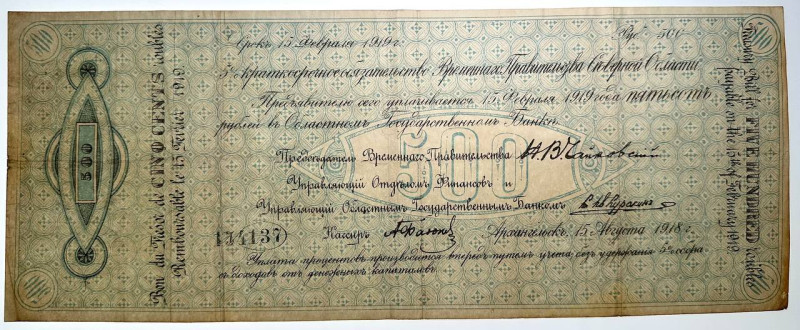 Срокъ 15 Февраля 1919 г.
Руб. 500
5% краткосрочное обязательство Временнаго Правительства Сѣверной Области
Предъявителю сего уплачивается 15 Февраля 1919 года пятьсотъ
рублей въ Областномъ Государственномъ Банкѣ
500
Предсѣдатель Временнаго Правительства Н.В. Чайковскій
Управляющій Отдѣломъ Финансовъ и
Управляющій Областнымъ Государственнымъ Банкомъ
Кассиръ
Архангельскъ, 15 Августа 1918 г.
Уплата процентовъ производится впередъ путемъ учета, безъ удержания 5% сбора
съ доходовъ отъ денежныхъ капиталовъ.
134137
500
Bon du Trésor de CINQ CENTS roubles
Remboursable le 15 Février 1919
Treasury Bill for FIVE HUNDRED roubles
payable on the 15th of February 1919